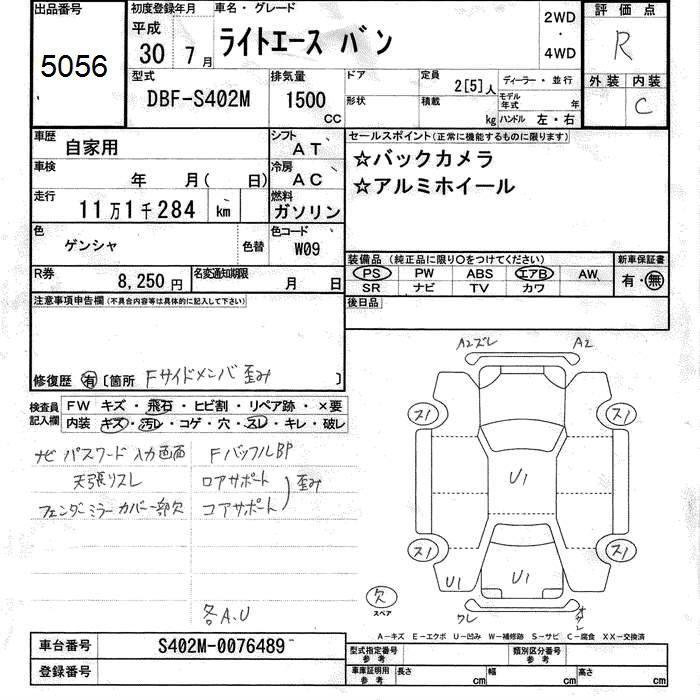 出品番号
5056
初度登録年月
平成
30 7月
車名・グレード
ライトエース バン
2WD
・
4WD
評価点
R
外装 内装
C
型式
DBF-S402M
排気量
1500
CC
ドア
形状
定員
2[5]人
積載
kg
ディーラー・並行
モデル年式 年
ハンドル 左・右
車歴
自家用
シフト
AT
車検
年 月( 日)
冷房
AC
走行
11万1千284 km
燃料
ガソリン
色
ゲンシャ
色替
色コード
W09
R券
8,250円
名変通知期限
月 日
セールスポイント(正常に機能するものに限ります)
☆バックカメラ
☆アルミホイール
装備品(純正品に限り○をつけてください)
新車保証書
PS PW ABS エアB AW
SR ナビ TV カワ
有・無
後日品
注意事項申告欄(不具合内容等は具体的に記入して下さい)
修復歴 有 〔箇所 Fサイドメンバ歪み 〕
検査員記入欄
FW キズ・飛石・ヒビ割・リペア跡・×要
内装 キズ・汚レ・コゲ・穴・スレ・キレ・破レ
ナビ パスワード 入力画面
天張リスレ
フェンダーミラー カバー一部欠
FバッフルBP
ロアサポート
コアサポート
歪み
各A.U
A2ズレ
A2
ス1
ス1
U1
ス1
ス1
U1
U1
欠
スペア
ワレ
A-キズ E-エクボ U-凹み W-補修跡 S-サビ C-腐食 XX-交換済
車台番号
S402M-0076489
登録番号
型式指定番号
参考
類別区分番号
参考
車庫証明用
参考
長さ cm
幅 cm
高さ cm